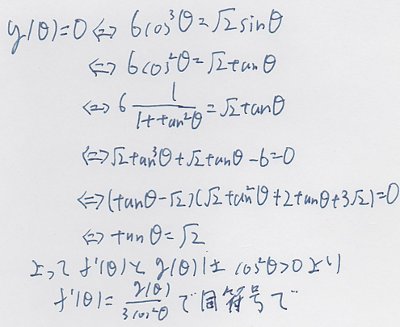 g(θ)=0 ⇔ 6cos³θ=√2 sinθ
⇔ 6cos²θ=√2 tanθ
⇔ 6 1/(1+tan²θ) = √2 tanθ
⇔ √2 tan³θ+√2 tanθ-6=0
⇔ (tanθ-√2)(√2 tan²θ+2tanθ+3√2)=0
⇔ tanθ=√2
よって f'(θ)と g(θ)は cos²θ>0 より
f'(θ)= g(θ)/(3cos²θ) で同符号で